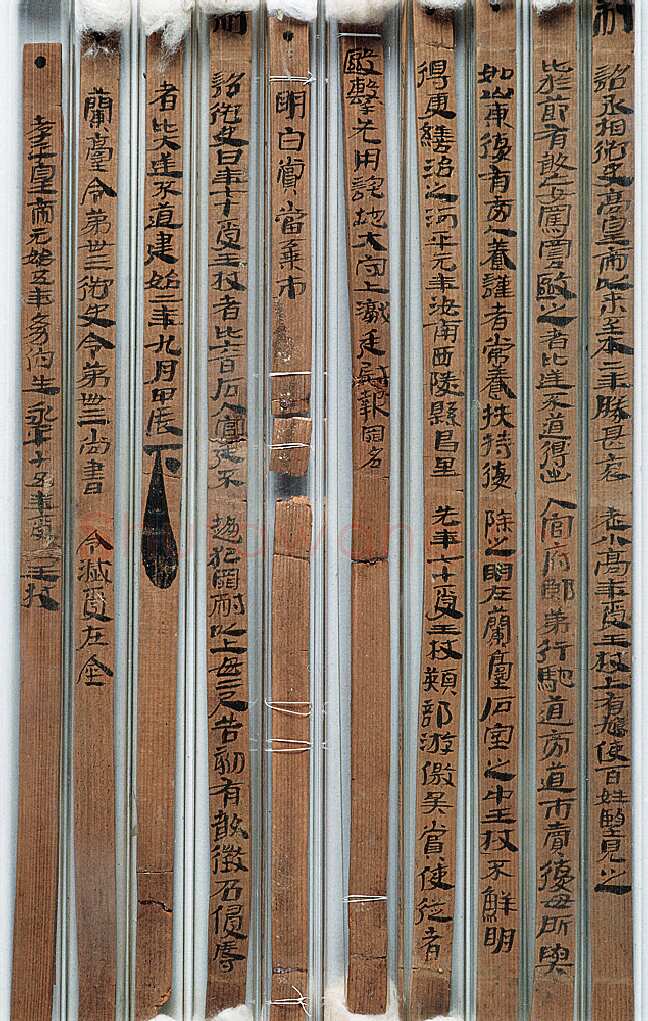 制詔丞相御史高皇帝以來至本二年勝甚哀老小高年受王杖上有鳩使百姓望見之
比於節有敢妄罵詈毆之者比逆不道得出入官府郎弟行馳道旁道市賣復毋所與
如山東復有旁人養謹者常養扶持復除之明在蘭臺石室之中王杖不鮮明
得更繕治之河平元年汝南西陵縣昌里先年七十受王杖熲部游徼吳賞使從者
毆擊先用詫地大守上讞廷尉報罪名
明白賞當棄市
制詔御史曰年七十受王杖者比六百石入宮廷不趨犯罪耐以上毋二尺告劾有敢徵召侵辱
者比大逆不道建始二年九月甲辰下
蘭臺令第卅三御史令第卌三尚書令滅受在金
孝平皇帝元始五年幼伯生永平十五年受王杖